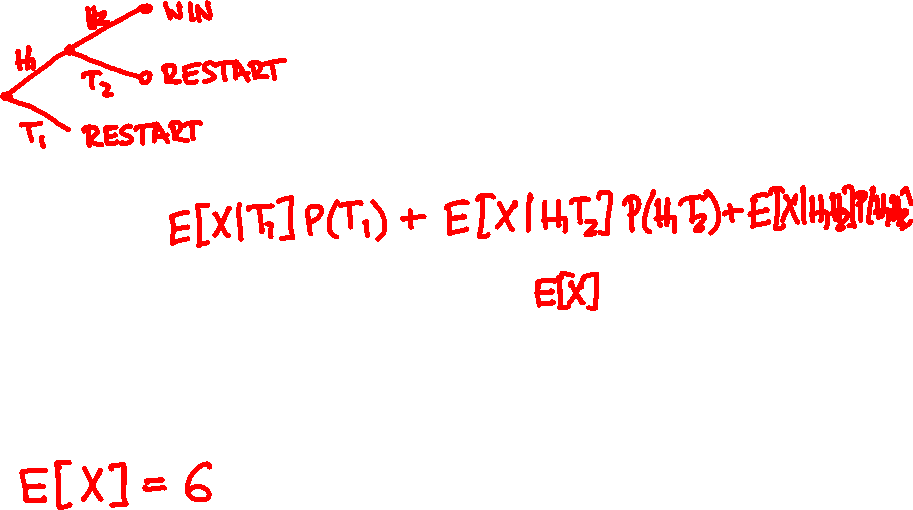 H₂ WIN
H₁
T₂ RESTART
T₁ RESTART
E[X|T₁]P(T₁) + E[X|H₁T₂]P(H₁T₂)+E[X|H₁H₂]P(H₁H₂)
E[X]
E[X] = 6